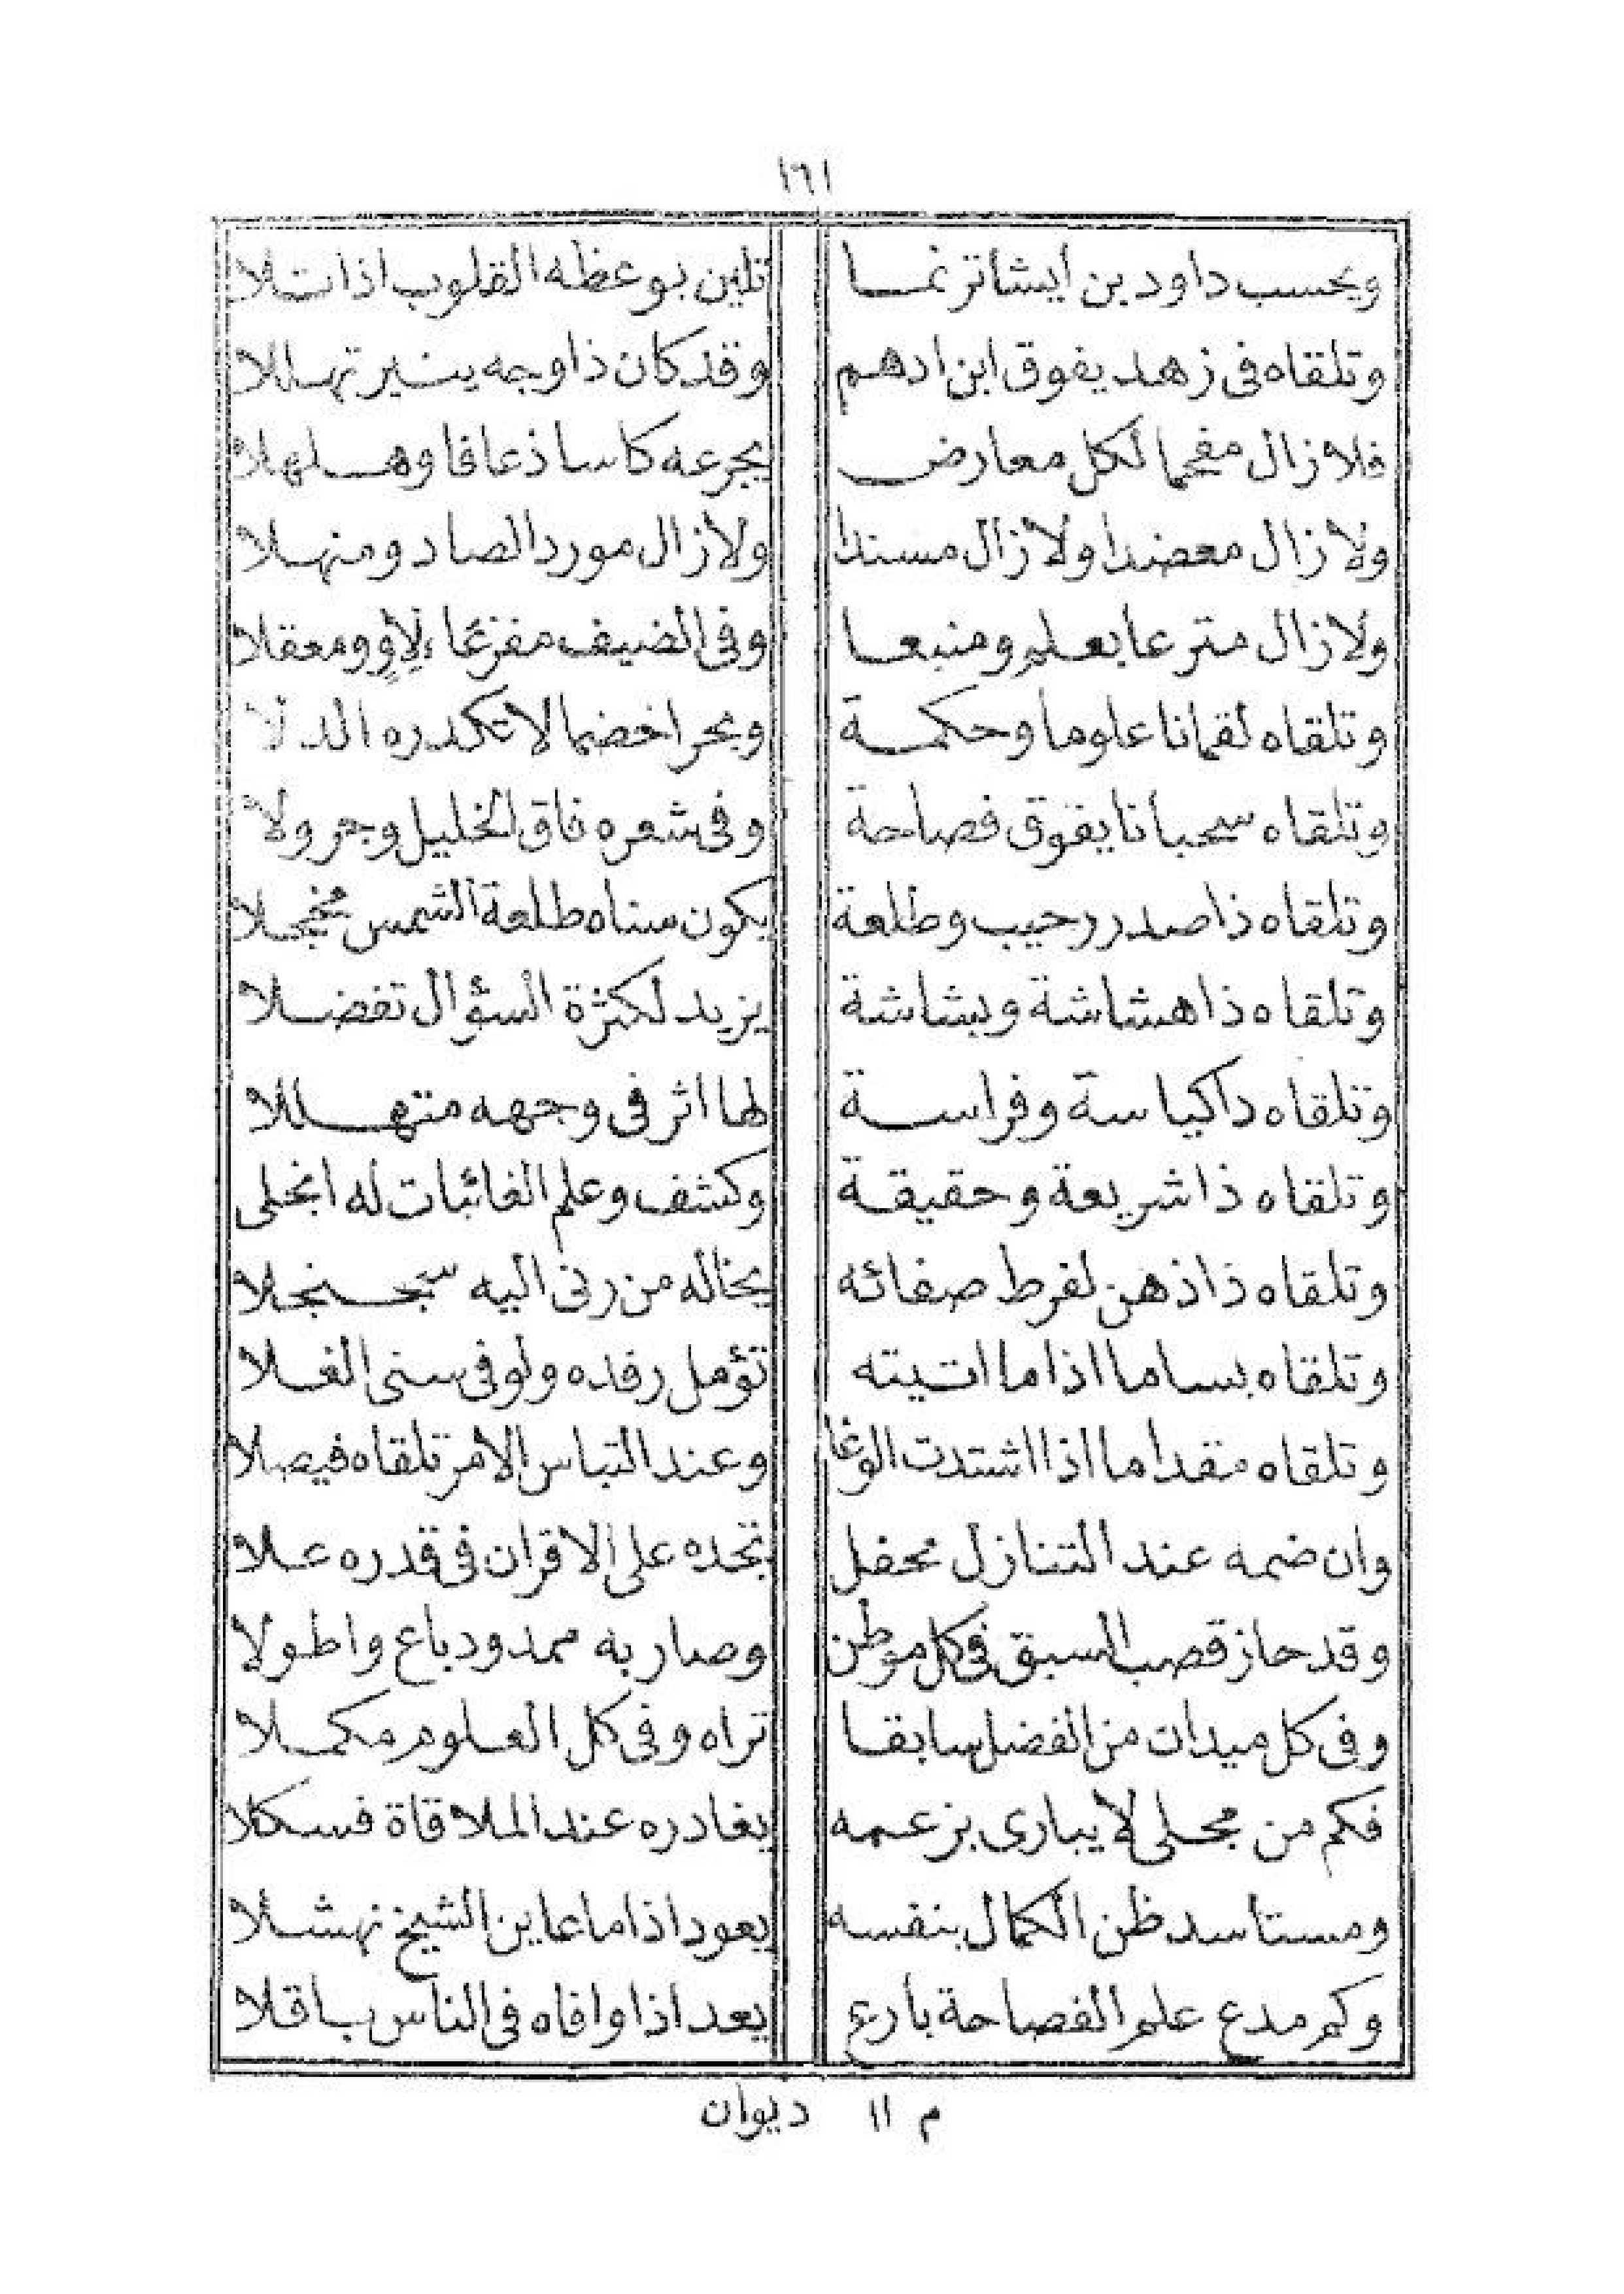 ١٦١
ويحسب داود بن أيشا ترنما تلين بوعظه القلوب اذا تلا
وتلقاه فى زهد يفوق ابن ادهم وقد كان ذا وجه ينير تهللا
فلا زال مفحما لكل معارض يجرعه كاسا ذعافا وهلهلا
ولا زال معضدا ولا زال مسندا ولا زال موردا لصاد ومنهلا
ولا زال مترعا بعلم ومنبعا وفى الضيف مفزعا ءلاوٍ ومعقلا
وتلقاه لقمانا علوما وحكمة وبحرا خضما لا تكدره الدلا
وتلقاه سحبانا يفوق فصاحة وفى شعره فاق الخليل وجرولا
وتلقاه ذا صدر رحيب وطلعة يكون سناه طلعة الشمس مخجلا
وتلقاه ذا هشاشة وبشاشة يزيد لكثرة السؤال تفضلا
وتلقاه داكياسة وفراسة لها اثر فى وجهه متهللا
وتلقاه ذا شريعة وحقيقة وكشف وعلم الغائبات له انجلى
وتلقاه ذا ذهن لفرط صفائه يخاله من رنى اليه سجنجلا
وتلقاه بساما اذا ما اتيته تؤمل رفده ولو فى سنى الغلا
وتلقاه مقداما اذا اشتدت الوغا وعند التباس الأمر تلقاه فيصلا
وان ضمه عند التنازل محفل تجده على الاقران فى قدره علا
وقد حاز قصب السبق فى كل موطن وصار به ممدود باع واطولا
وفى كل ميدان من الفضل سابقا تراه وفى كل العلوم مكملا
فكم من مجلى لا يبارى بزعمه يغادره عند الملاقاة فسكلا
ومستاسد ظن الكمال بنفسه يعود اذا ما عاين الشيخ نهشلا
وكم مدع علم الفصاحة بارع يعد اذا وافاه فى الناس باقلا
م ١١ ديوان